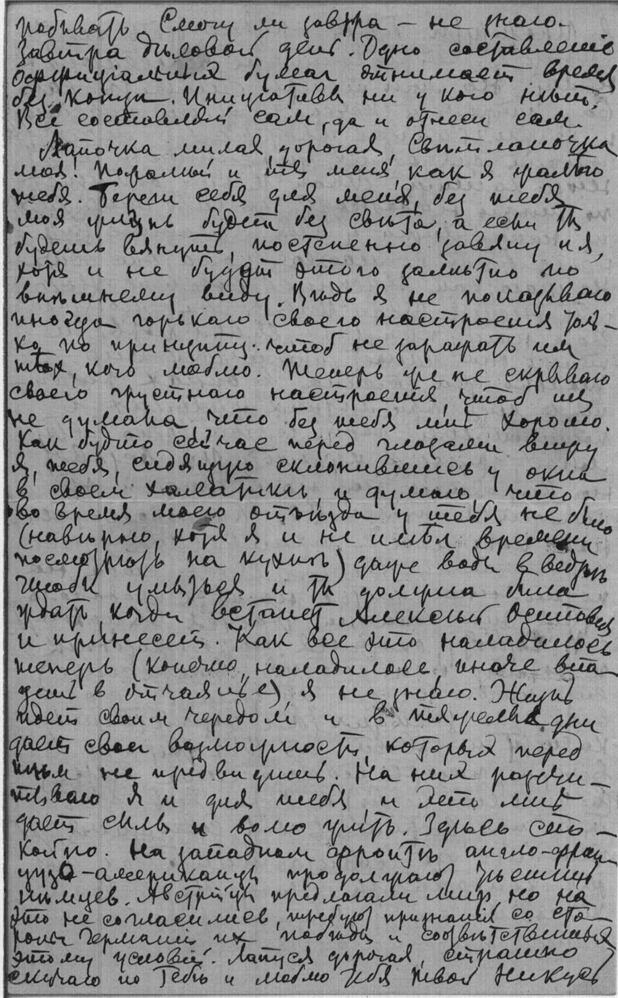 побывать. Смогу ли завтра – не знаю.
Завтра дѣловой день. Одно составленіе
оффиціальныхъ бумаг отнимает время
без конца. Иниціативы ни у кого нѣтъ.
Всё составляй сам, да и отнеси сам.
Лапочка милая, дорогая, Свѣтланочка
моя! Пожалѣй и ты меня, как я жалѣю
тебя. Береги себя для меня, без тебя
моя жизнь будет без свѣта, а если ты
будешь вянуть, постепенно завяну и я,
хотя и не будет этого замѣтно по
внѣшнему виду. Вѣдь я не показываю
иногда горькаго своего настроенія толь-
ко по принципу: чтоб не заражать им
тѣх, кого люблю. Теперь уже не скрываю
своего грустнаго настроенія, чтоб ты
не думала, что без тебя мнѣ хорошо.
Как будто сейчас перед глазами вижу
я тебя, сидящую склонившись у окна
в своем халатикѣ, и думаю, что
во время моего отъѣзда у тебя не было
(навѣрно, хотя я и не имѣл времени
посмотрѣть на кухнѣ) даже воды в ведрѣ
чтобы умыться и ты должна была
ждать, когда встанет Алексѣй Осипович
и принесет. Как все это наладилось
теперь (конечно, наладилось, иначе впа-
дешь в отчаянье) я не знаю. Жизнь
идет своим чередом и в тяжелые дни
дает свои возможности, которых перед
тѣм не предвидишь. На них разсчи-
тываю я и для тебя, и это мнѣ
дает силы и волю жить. Здѣсь спо-
койно. На западном фронтѣ англо-фран-
цузо-американцы продолжают тѣснить
нѣмцев. Австрійцы предлагали мир, но на
это не согласились, требуют признанія со сто-
роны Германіи их побѣды и соотвѣтственныя
этому условій. Лапуся дорогая, страшно
скучаю по Тебѣ и люблю Тебя твой Никусь